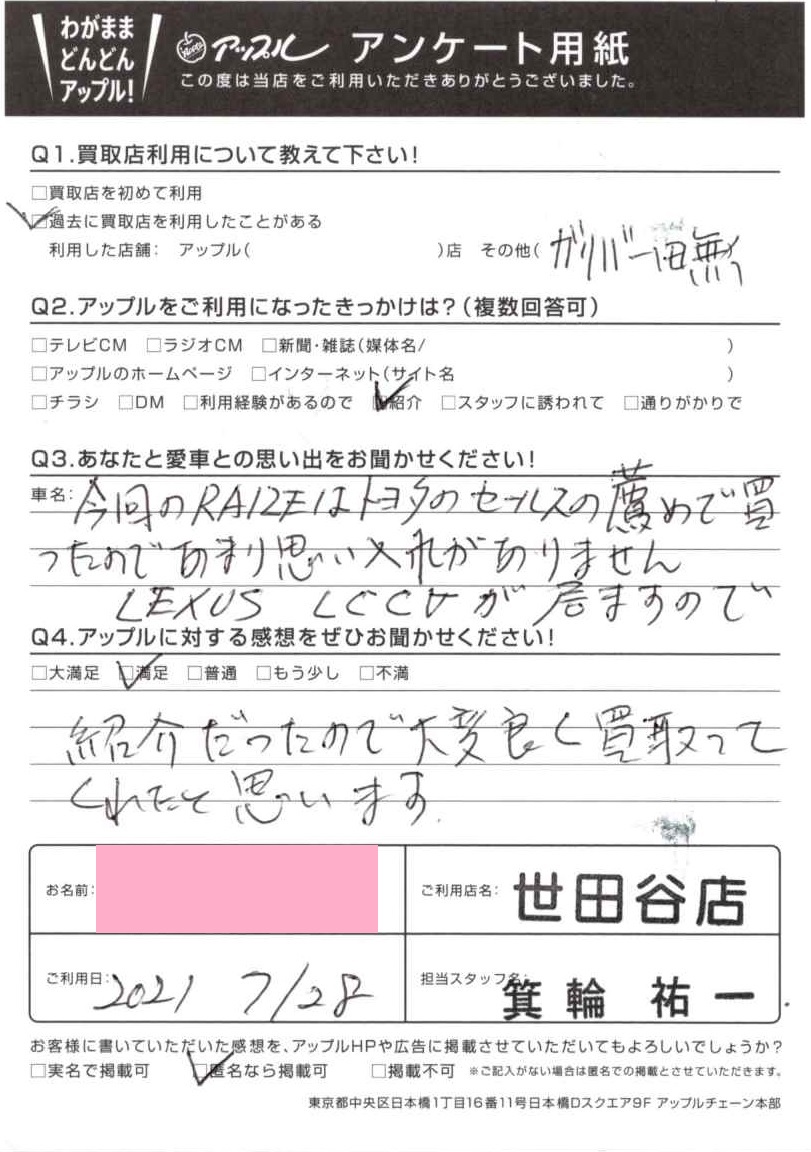 わがまま
どんどん
アップル!
アップル アンケート用紙
この度は当店をご利用いただきありがとうございました。
Q1.買取店利用について教えて下さい!
□買取店を初めて利用
□過去に買取店を利用したことがある
利用した店舗: アップル( )店 その他(ガリバー
Q2.アップルをご利用になったきっかけは?(複数回答可)
□テレビCM □ラジオCM □新聞・雑誌(媒体名/ )
□アップルのホームページ □インターネット(サイト名 )
□チラシ □DM □利用経験があるので □紹介 □スタッフに誘われて □通りがかりで
Q3.あなたと愛車との思い出をお聞かせください!
車名: 今回のRAIZEはトヨタのセールスの薦めで買
ったのであまり思い入れがありません
LEXUS LCCVが居ますので
Q4.アップルに対する感想をぜひお聞かせください!
□大満足 □満足 □普通 □もう少し □不満
紹介だったので大変良く買取って
くれたと思います
お名前:
ご利用店名: 世田谷店
ご利用日: 2021 7/28
担当スタッフ名: 箕輪 祐一
お客様に書いていただいた感想を、アップルHPや広告に掲載させていただいてもよろしいでしょうか?
□実名で掲載可 □匿名なら掲載可 □掲載不可 ※ご記入がない場合は匿名での掲載とさせていただきます。
東京都中央区日本橋1丁目16番11号日本橋Dスクエア9F アップルチェーン本部